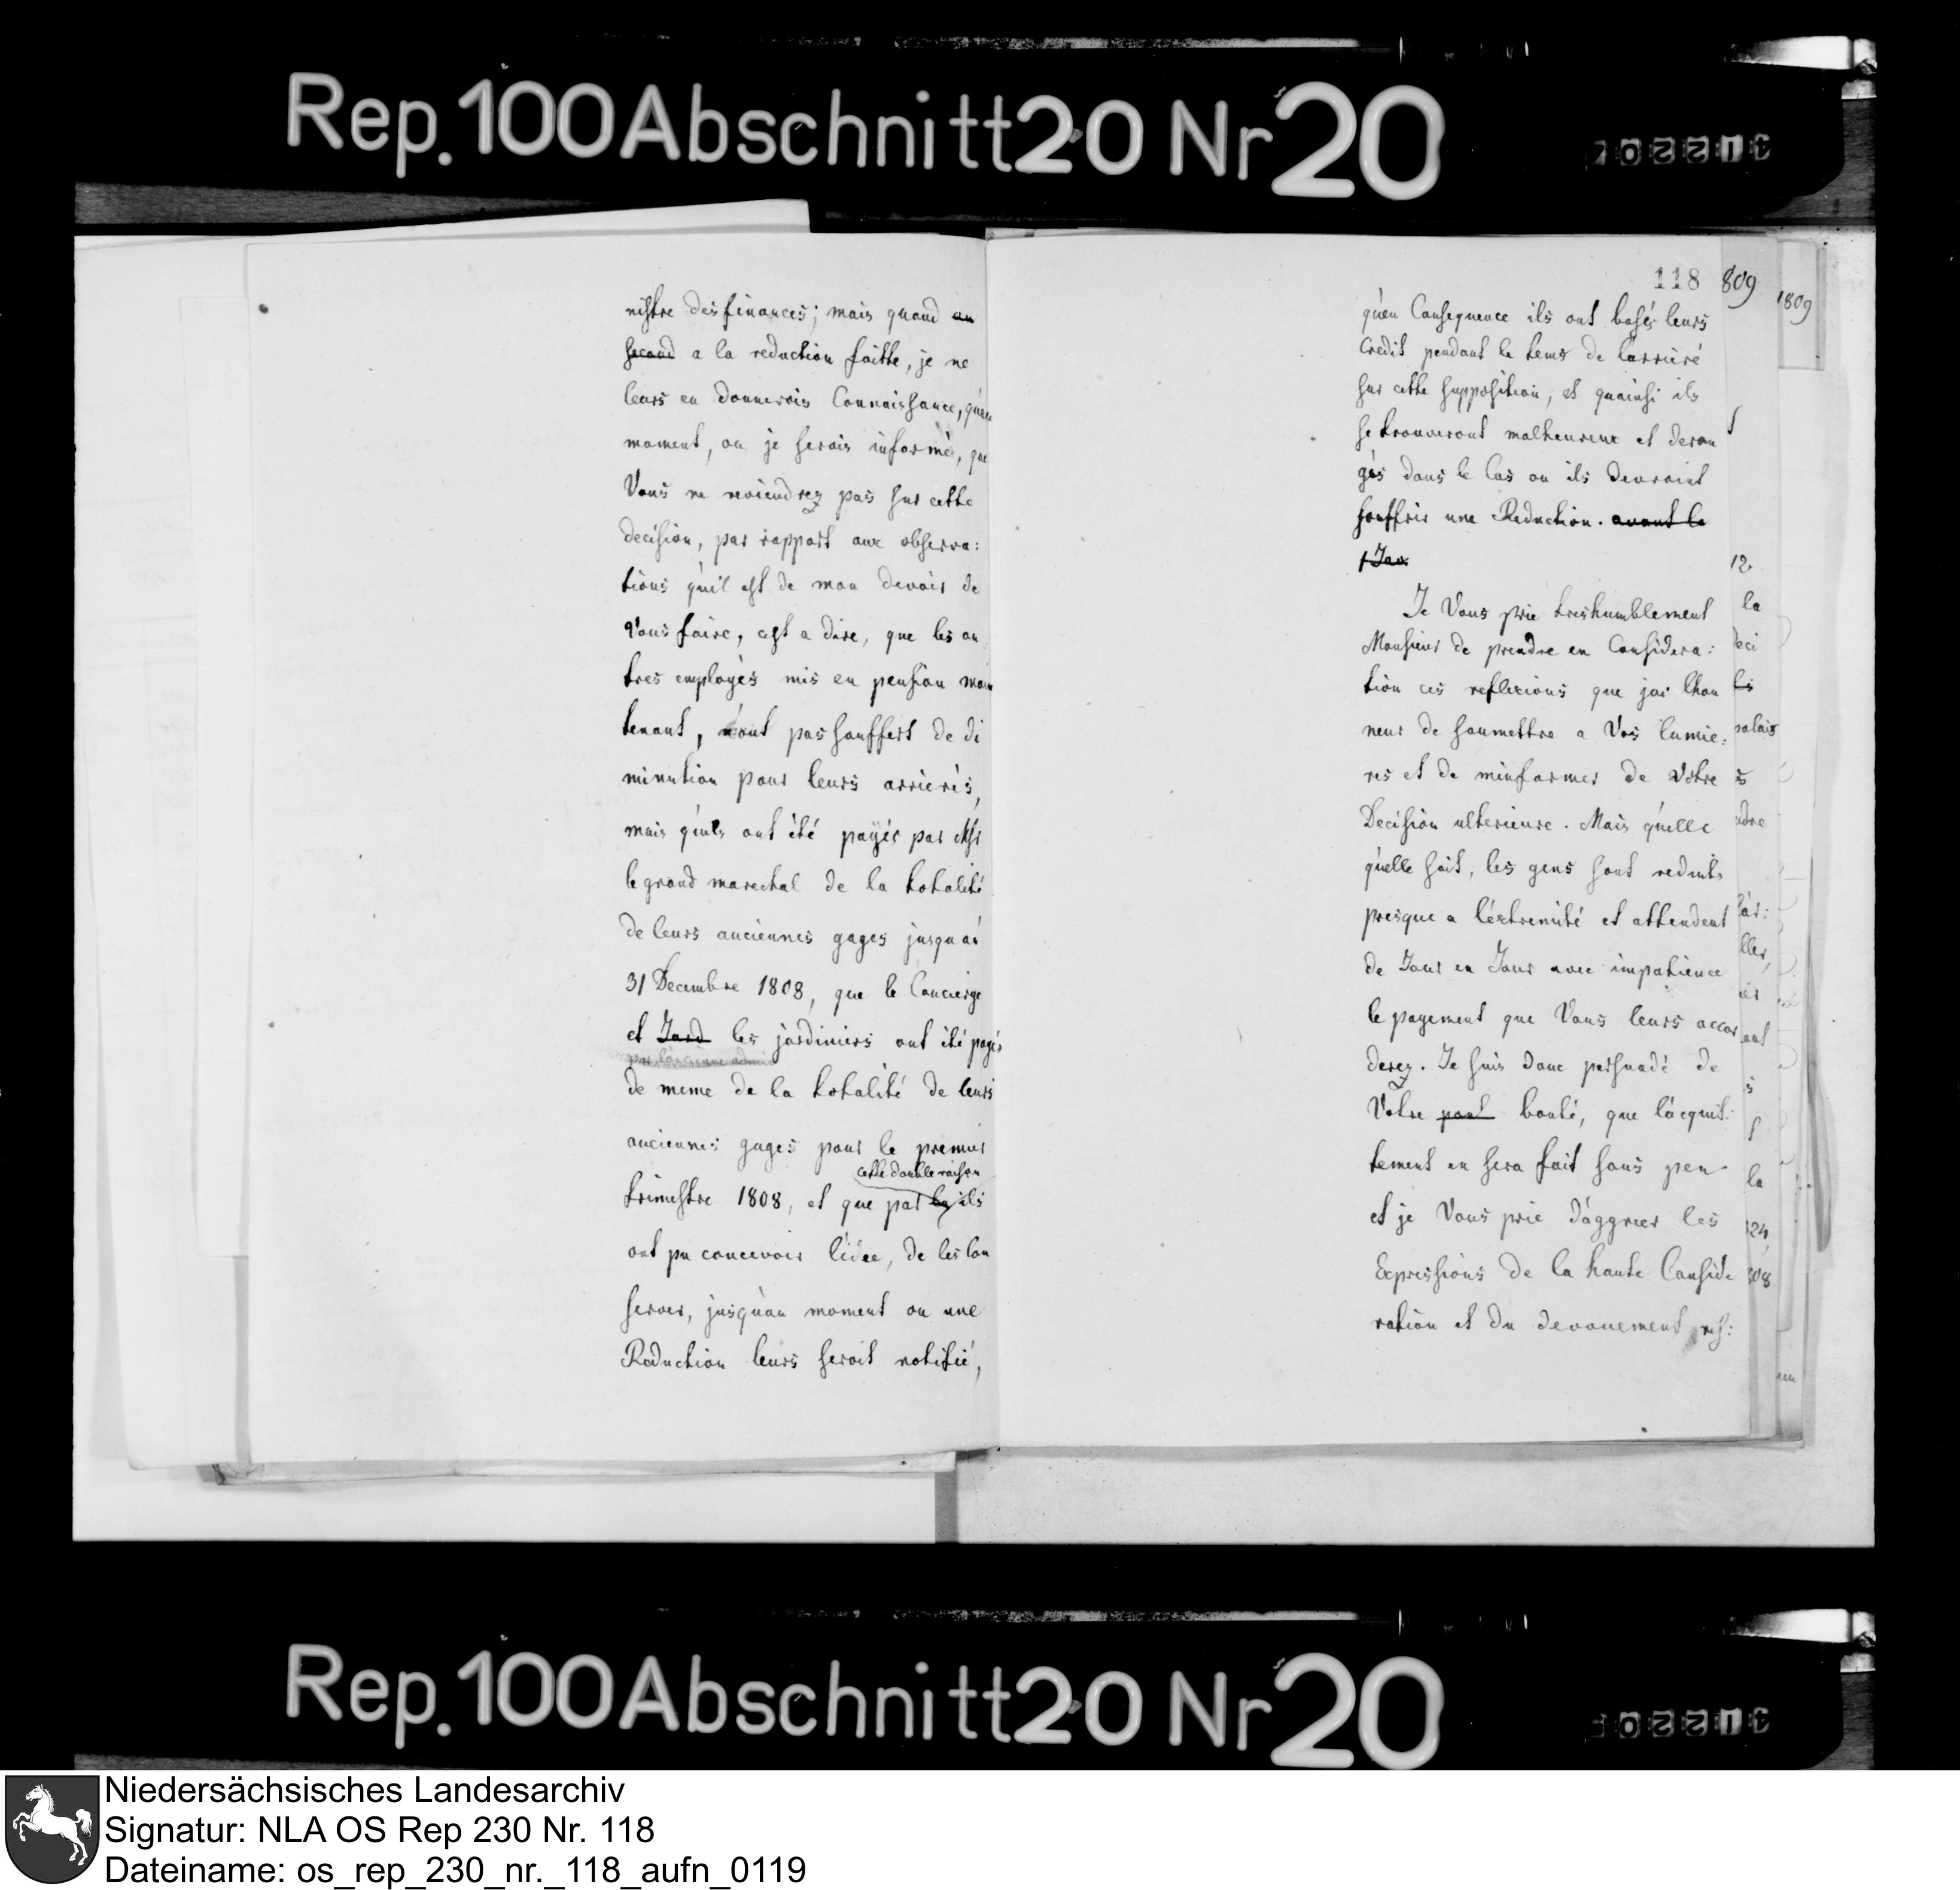 Rep. 100 Abschnitt 20 Nr 20
nistre des finances; mais quand au
second a la reduction faitte, je ne
leurs en donnerois Connaissance, qu'au
moment, ou je serois informé, que
Vous ne reviendrez pas sur cette
decision, par rapport aux observa:
tions qu'il est de mon devoir de
Vous faire, cest a dire, que les au
tres employés mis en pension main
tenant, n'ont pas souffert de di
minution pour leurs arrierés,
mais qu'ils ont été payés par Msr
le grand marechal de la totalité
de leurs anciennes gages jusqu'au
31 Decembre 1808, que le Concierge
et Jard les jardiniers ont été payés
par l'ancienne admi
de meme de la totalité de leurs
anciennes gages pour le premier
cette double raison
trimestre 1808, et que par ils
ont pu concevoir l'idée, de les Con
server, jusqu'au moment ou une
Reduction leurs seroit notifié,
118
809
1809
qu'en Consequence ils ont basés leurs
Credit pendant le tems de l'arrièré
sur cette supposition, et qu'ainsi ils
se trouveront malheureux et deran
gés dans le Cas ou ils devroint
souffrir une Reduction. avant le
1 Jan
Je Vous prie treshumblement
Monsieur de prendre en Considera:
tion ces reflexions que jai lhon
neur de soumettre a Vos lumie:
res et de minformer de Votre
Decision ulterieure. Mais qu'elle
qu'elle soit, les gens sont reduits
presque a l'éxtremité et attendent
de Jour en Jour avec impatience
le payement que Vous leurs accor
derez. Je suis donc persuadé de
Votre bonté, que l'acquit:
tement en sera fait sous peu
et je Vous prie d'aggreer les
Expressions de la haute Conside
ration et du devouement res:
12
la
deci
palais
ller,
la
Rep. 100 Abschnitt 20 Nr 20
Niedersächsisches Landesarchiv
Signatur: NLA OS Rep 230 Nr. 118
Dateiname: os_rep_230_nr._118_aufn_0119